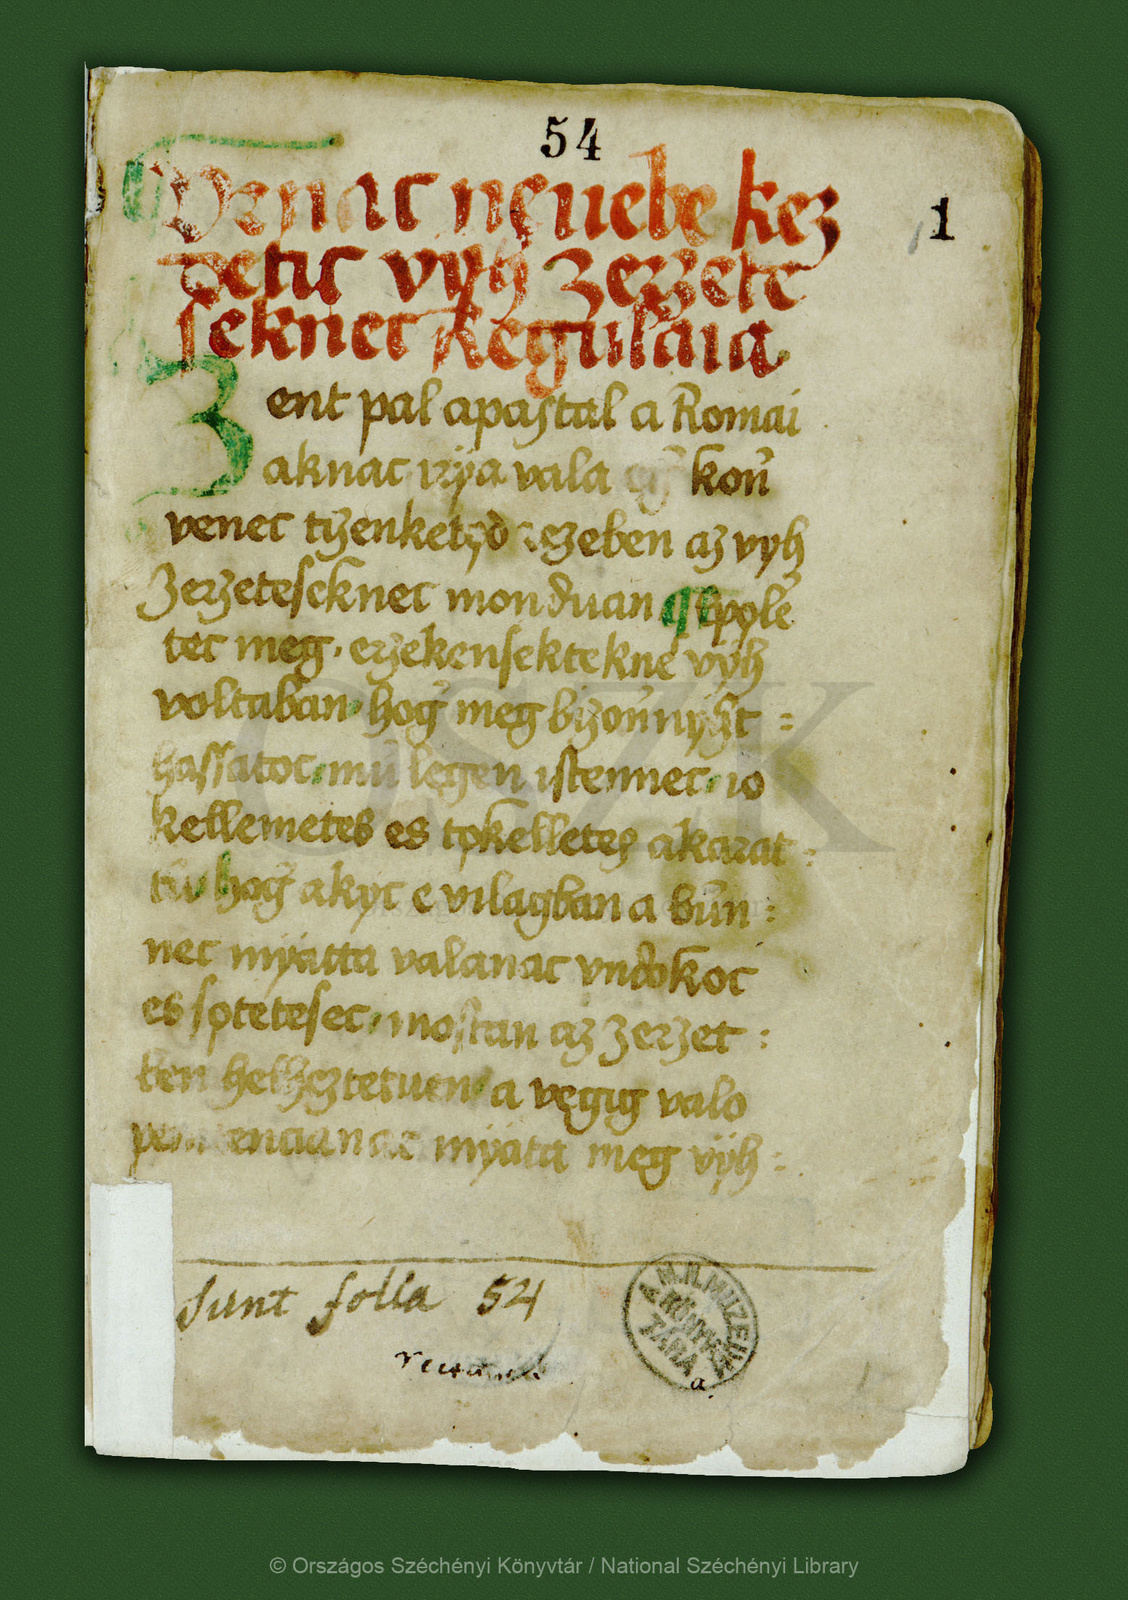 54
1
Vrnac nęuebe kez
detic vyh zerzete
seknec Regulaia
Zent pal apastal a Romai
aknac irÿa vala eg̃ kon̄
venec tÿzenketęd rezeben az vyh
zerzeteseknec monduan ¶ Epọle
tec meg. erzekensektekne vÿh
voltaban hog̃ meg bizon̄nÿgt =
hassatoc mÿ legen istennec io
kellemetes es tọkelletes akarat :
tia hog̃ akyc e vilagban a bűn :
nec mÿatta valanac vndokoc
es sọtetesec mostan az zerzet :
ben helheztetuen a vęgig valo
penitencianac mÿata meg vÿh :
Sunt folia 54
A M. N. MUZEUM KÖNYVTÁRA
OSZK
© Országos Széchényi Könyvtár / National Széchényi Library